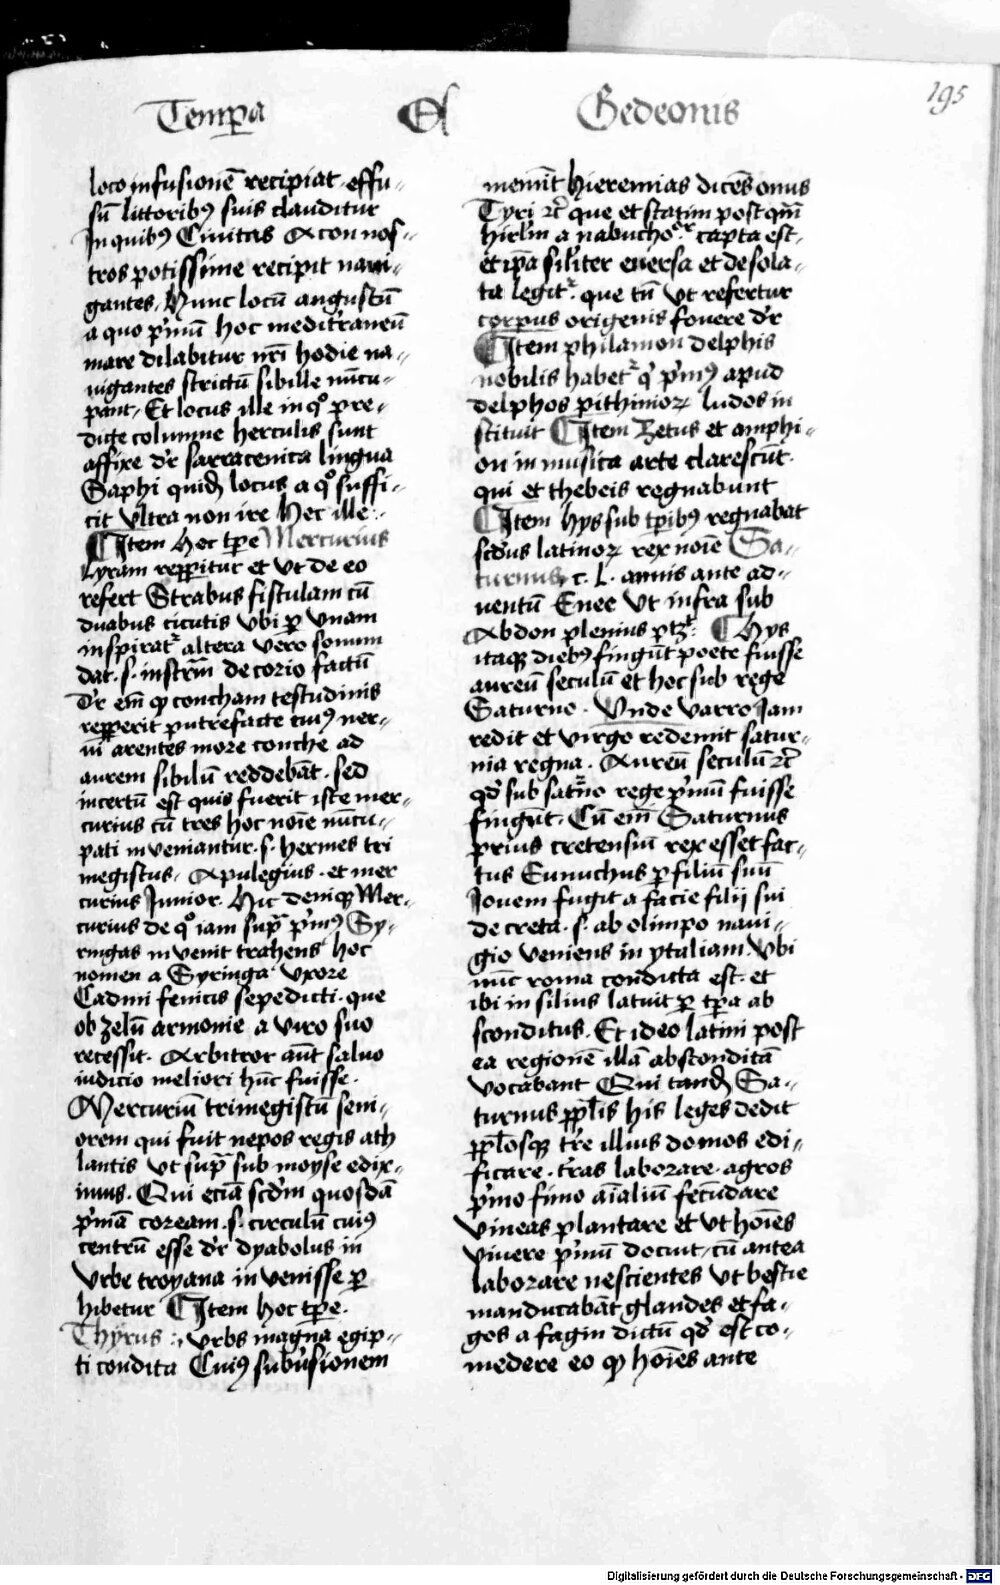 Temꝑa El Gedeonis
195
loco infusionē recipiat effu-
sū littoribꝰ suis clauditur
In quibꝰ Civitas Acon nos-
tros potissime recipit navi-
gantes, Nunc locū angustū
a quo pͥmū hoc medit̄raneū
mare dilabitur nr̄i hodie na-
vigantes strictū sibille nūcu-
pant, Et locus ille in qͦ pre-
dicte columne herculis sunt
affixe dr̄ sarracenica lingua
Saphi quid̄ locus a qͦ suffi-
cit ultra non ire Hec ille
Item hec tꝑe Mercurius
Lyram repperitur et ut de eo
refert Strabus fistulam cū
duabus cicutis ubi ꝑ unam
inspirat᷑ altera vero sonum
dat .s. instrm̄ de corio factū
Dr̄ em̄ ꝙ concham testudinis
repperit putrefacte cuiꝰ ner-
vi arentes more conche ad
aurem sibilū reddebāt. sed
incertū est quis fuerit iste mer-
curius cū tres hoc noīe nūcu-
pati inveniantur .s. hermes tri
megistus, Apulegius. et mer
curius Junior. Hic deniqꝫ Mer-
curius de qͦ iam supͣ pͥmꝰ Sy-
ringas invenit trahens hoc
nomen a Syringa uxore
Cadmi fenicis sepedicti. que
ob zelū armonie a viro suo
recessit. Arbitror aūt salvo
iudicio meliori hūc fuisse.
Mercuriū trimegistū seni-
orem qui fuit nepos regis ath
lantis ut supͣ sub moyse edix-
imus. Qui eciā scdm̄ quosdā
pͥmā coream .s. circulū cuiꝰ
centrū esse dr̄ dyabolus in
Urbe troyana invenisse ꝑ
hibetur Item hoc tꝑe.
Thyrus urbs magna egip-
ti condita Cuiꝰ
meminit hieremias dicēs onus
Tyri ⁊c̄ que et statim post qm̄
hirlm̄ a nabucho capta est,
et ip̄a sil̄iter eversa et desola-
ta legit᷑. que tn̄ ut refertur
corpus origenis fovere dr̄
Item philamon delphis
nobilis habet᷑ qͥ pͥmꝰ apud
delphos pithinioꝝ ludos in
stituit Item Zetus et amphi-
on in musica arte clarescūt.
qui et thebeis regnabunt
Item hys sub tꝑibꝰ regnabat
scdus latinoꝝ rex noīe Sa-
turnus, c. L. annis ante ad-
ventū Enee ut infra sub
Abdon plenius ptꝫ. Hys
itaqꝫ diebꝰ fingūt poete fuisse
aureū seculū et hoc sub rege
Saturno. Unde varro Jam
redit et virgo redemit satur-
nia regna. Aureū seculū ⁊c̄
qd̄ sub sat̄no rege pͥmū fuisse
fingūt. Cū em̄ Saturnus
prius cretensiū rex esset fac-
tus Eunuchus ꝑ filiū suū
Jovem fugit a facie filij sui
de creta .s. ab olimpo navi-
gio veniens in ytaliam. Ubi
nūc roma condita est. et
ibi in silius latuit ꝑ tꝑa ab
sconditus. Et ideo latini post
ea regionē illā absconditā
vocabant Qui tand̄ Sa-
turnus ppl̄is his leges dedit
ppl̄osqꝫ tr̄e illius domos edi-
ficare. tr̄ras laborare. agros
pͥmo fimo aīaliū fecūdare
vineas plantare et ut hoīes
vivere pͥmū docuit, cū antea
laborare nescientes ut bestie
manducabāt glandes et fa-
gos a fagin dictū qd̄ est co-
medere eo ꝙ hoīes ante
Digitalisierung gefördert durch die Deutsche Forschungsgemeinschaft - DFG